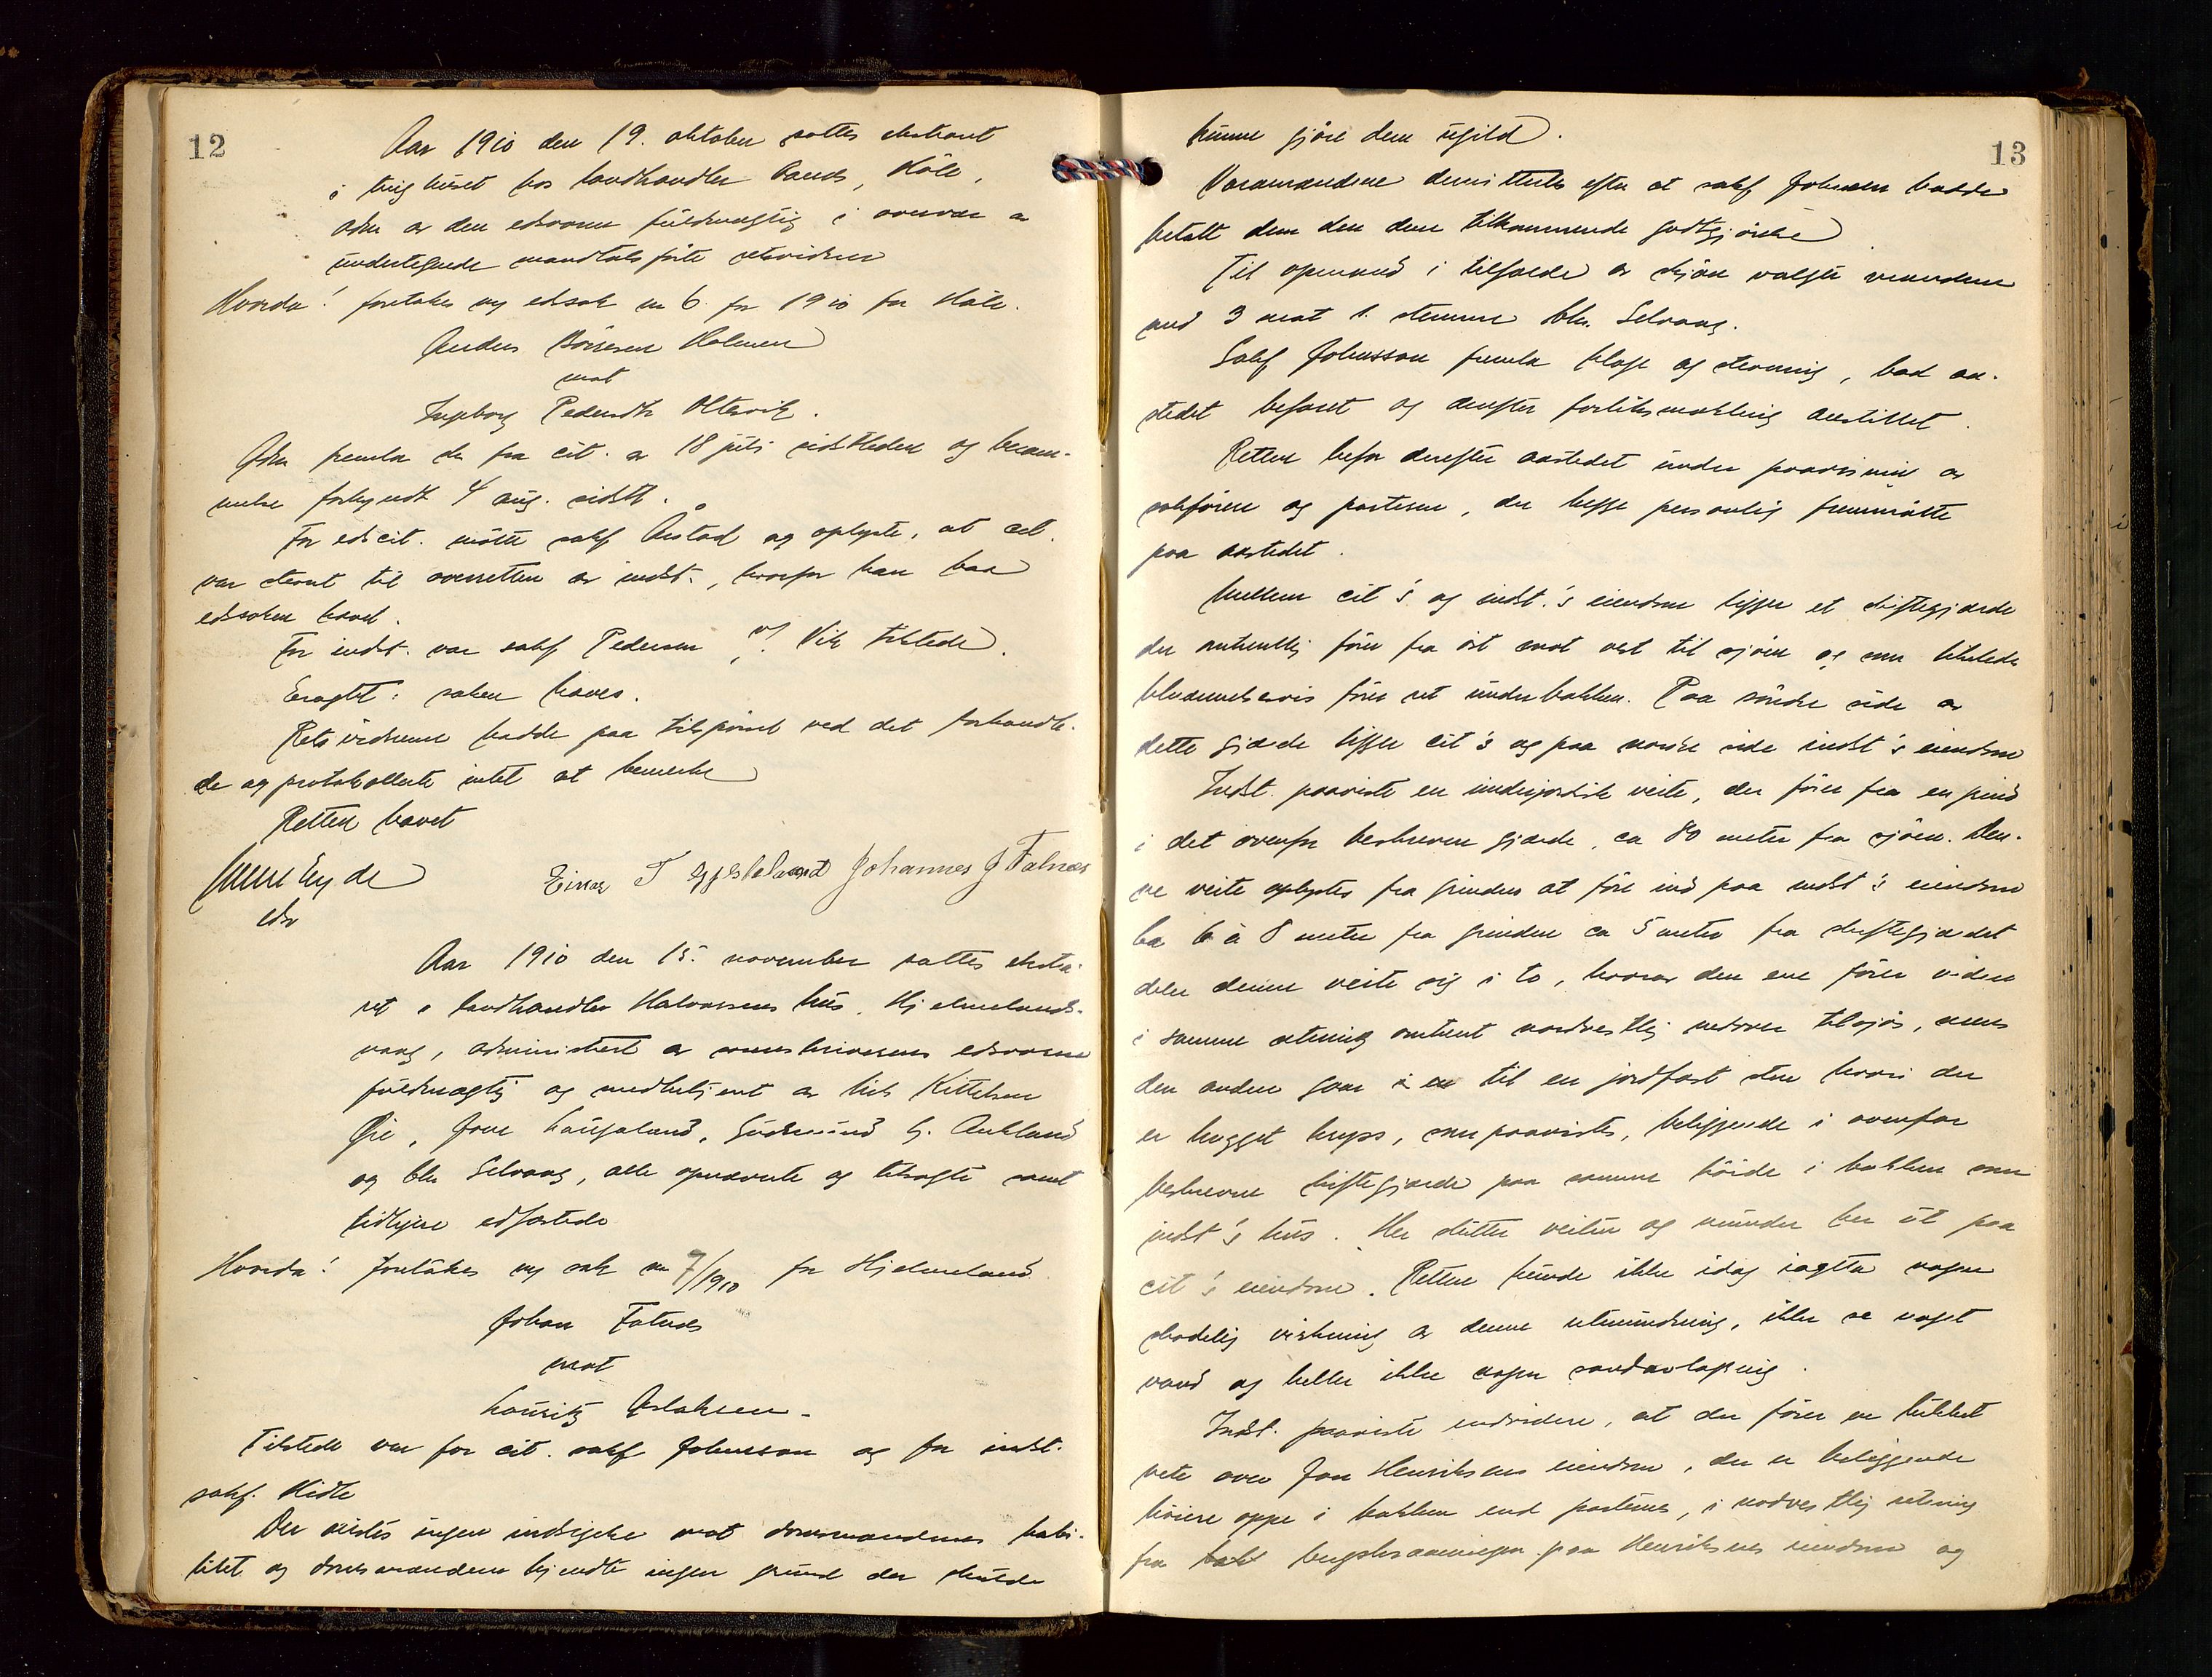 12
Aar 1910 den 19. oktober sattes ekstraret
i tinghuset hos landhandler Sands, Høle,
adm av den edsvorne fuldmægtig i overvær av
undertegnede mandtalsførte retsvidner
Hvorda: foretokes ny edsak nr 6 for 1910 for Høle.
Anders Børresen Holmen
mot
Ingeborg Pedersdtr Oltesvik.
Adm fremla de fra cit. av 18 juli sidstleden og beram-
melse forkyndt 4 aug. sidstl.
For edscit. møtte sakf Årstad og oplyste, at cit.
var stevnt til overretten av indst., hvorfor han bad
edssaken hævet.
For indst. var sakf Pedersen v/ Vik tilstede.
Eragtet: saken hæves.
Retsvidnene hadde paa tilspørsel ved det forhandle-
de og protokollerte intet at bemerke
Retten hævet
edsv
Einar T Eggebø Johannes J Falnes
Aar 1910 den 15. november sattes ekstra-
ret i landhandler Halvorsens hus, Hjelmelands-
vaag, administrert av sorenskriverens edsvorne
fuldmægtig og medbetjent av Nils Kittelsen
Øie, Jone Laugaland, Gudmund G. Aukland
og Chr Selvaag, alle opnævnte og tilsagte samt
tidligere edfæstede
Hvorda: foretokes ny sak nr 7/1910 for Hjelmeland
Johan Fatnes
mot
Lauritz Aslaksen.
Tilstede var for cit. sakf Johnsson og for indst.
sakf. Kidle
Der reistes ingen indsigelse mot domsmændenes habi-
litet og domsmændene kjendte ingen grund der skulde
13
kunne gjøre dem ugild.
Varamændene demitterte efter at sakf Johnsson hadde
betalt dem den dem tilkommende godtgjørelse
Til opmand i tilfælde av skjøn valgte mændene
med 3 mot 1 stemme Chr. Selvaag.
Sakf Johnsson fremla klage og stevning, bad aa-
stedet befaret og derefter forliksmækling anstillet.
Retten befor derefter aastedet under paavisning av
sakførere og parterne, der begge personlig fremmøtte
paa aastedet.
Mellem cit's og indst.'s eiendom ligger et skiftegjærde
der omtrentlig fører fra øst mot vest til sjøen og som tilstede
bludemelsevis fører ret under bakken. Paa søndre side av
dette gjærde ligger cit's og paa nordre side indst's eiendom
Indst. paaviste en underjordisk veite, der fører fra en grind
i det ovenfor beskrevne gjærde, ca 80 meter fra sjøen. Den-
ne veite oplystes fra grinden at føre ind paa indst's eiendom
Ca 6 à 8 meter fra grinden ca 5 meter fra skiftegjærdet
deler denne veite sig i to, hvorav den ene fører videre
i samme retning omtrent nordvestlig nedover tilsjøs, mens
den anden gaar i en til en jordfast sten hvori der
er hugget kryss, som paavistes, beliggende i ovenfor
beskrevne skiftegjærde paa samme høide i bakken som
indst's hus. Her slutter veiten og munder her ut paa
cit's eiendom. Retten kunde ikke idag iagtta nogen
skadelig virkning av denne utmundning, ikke se noget
vand og heller ikke nogen sandavlagring.
Indst. paaviste endvidere, at der fører en lukket
veite over Jon Henriksens eiendom, der er beliggende
høiere oppe i bakken end partenes, i nordvestlig retning
fra bergskraaningen paa Henriksens eiendom og